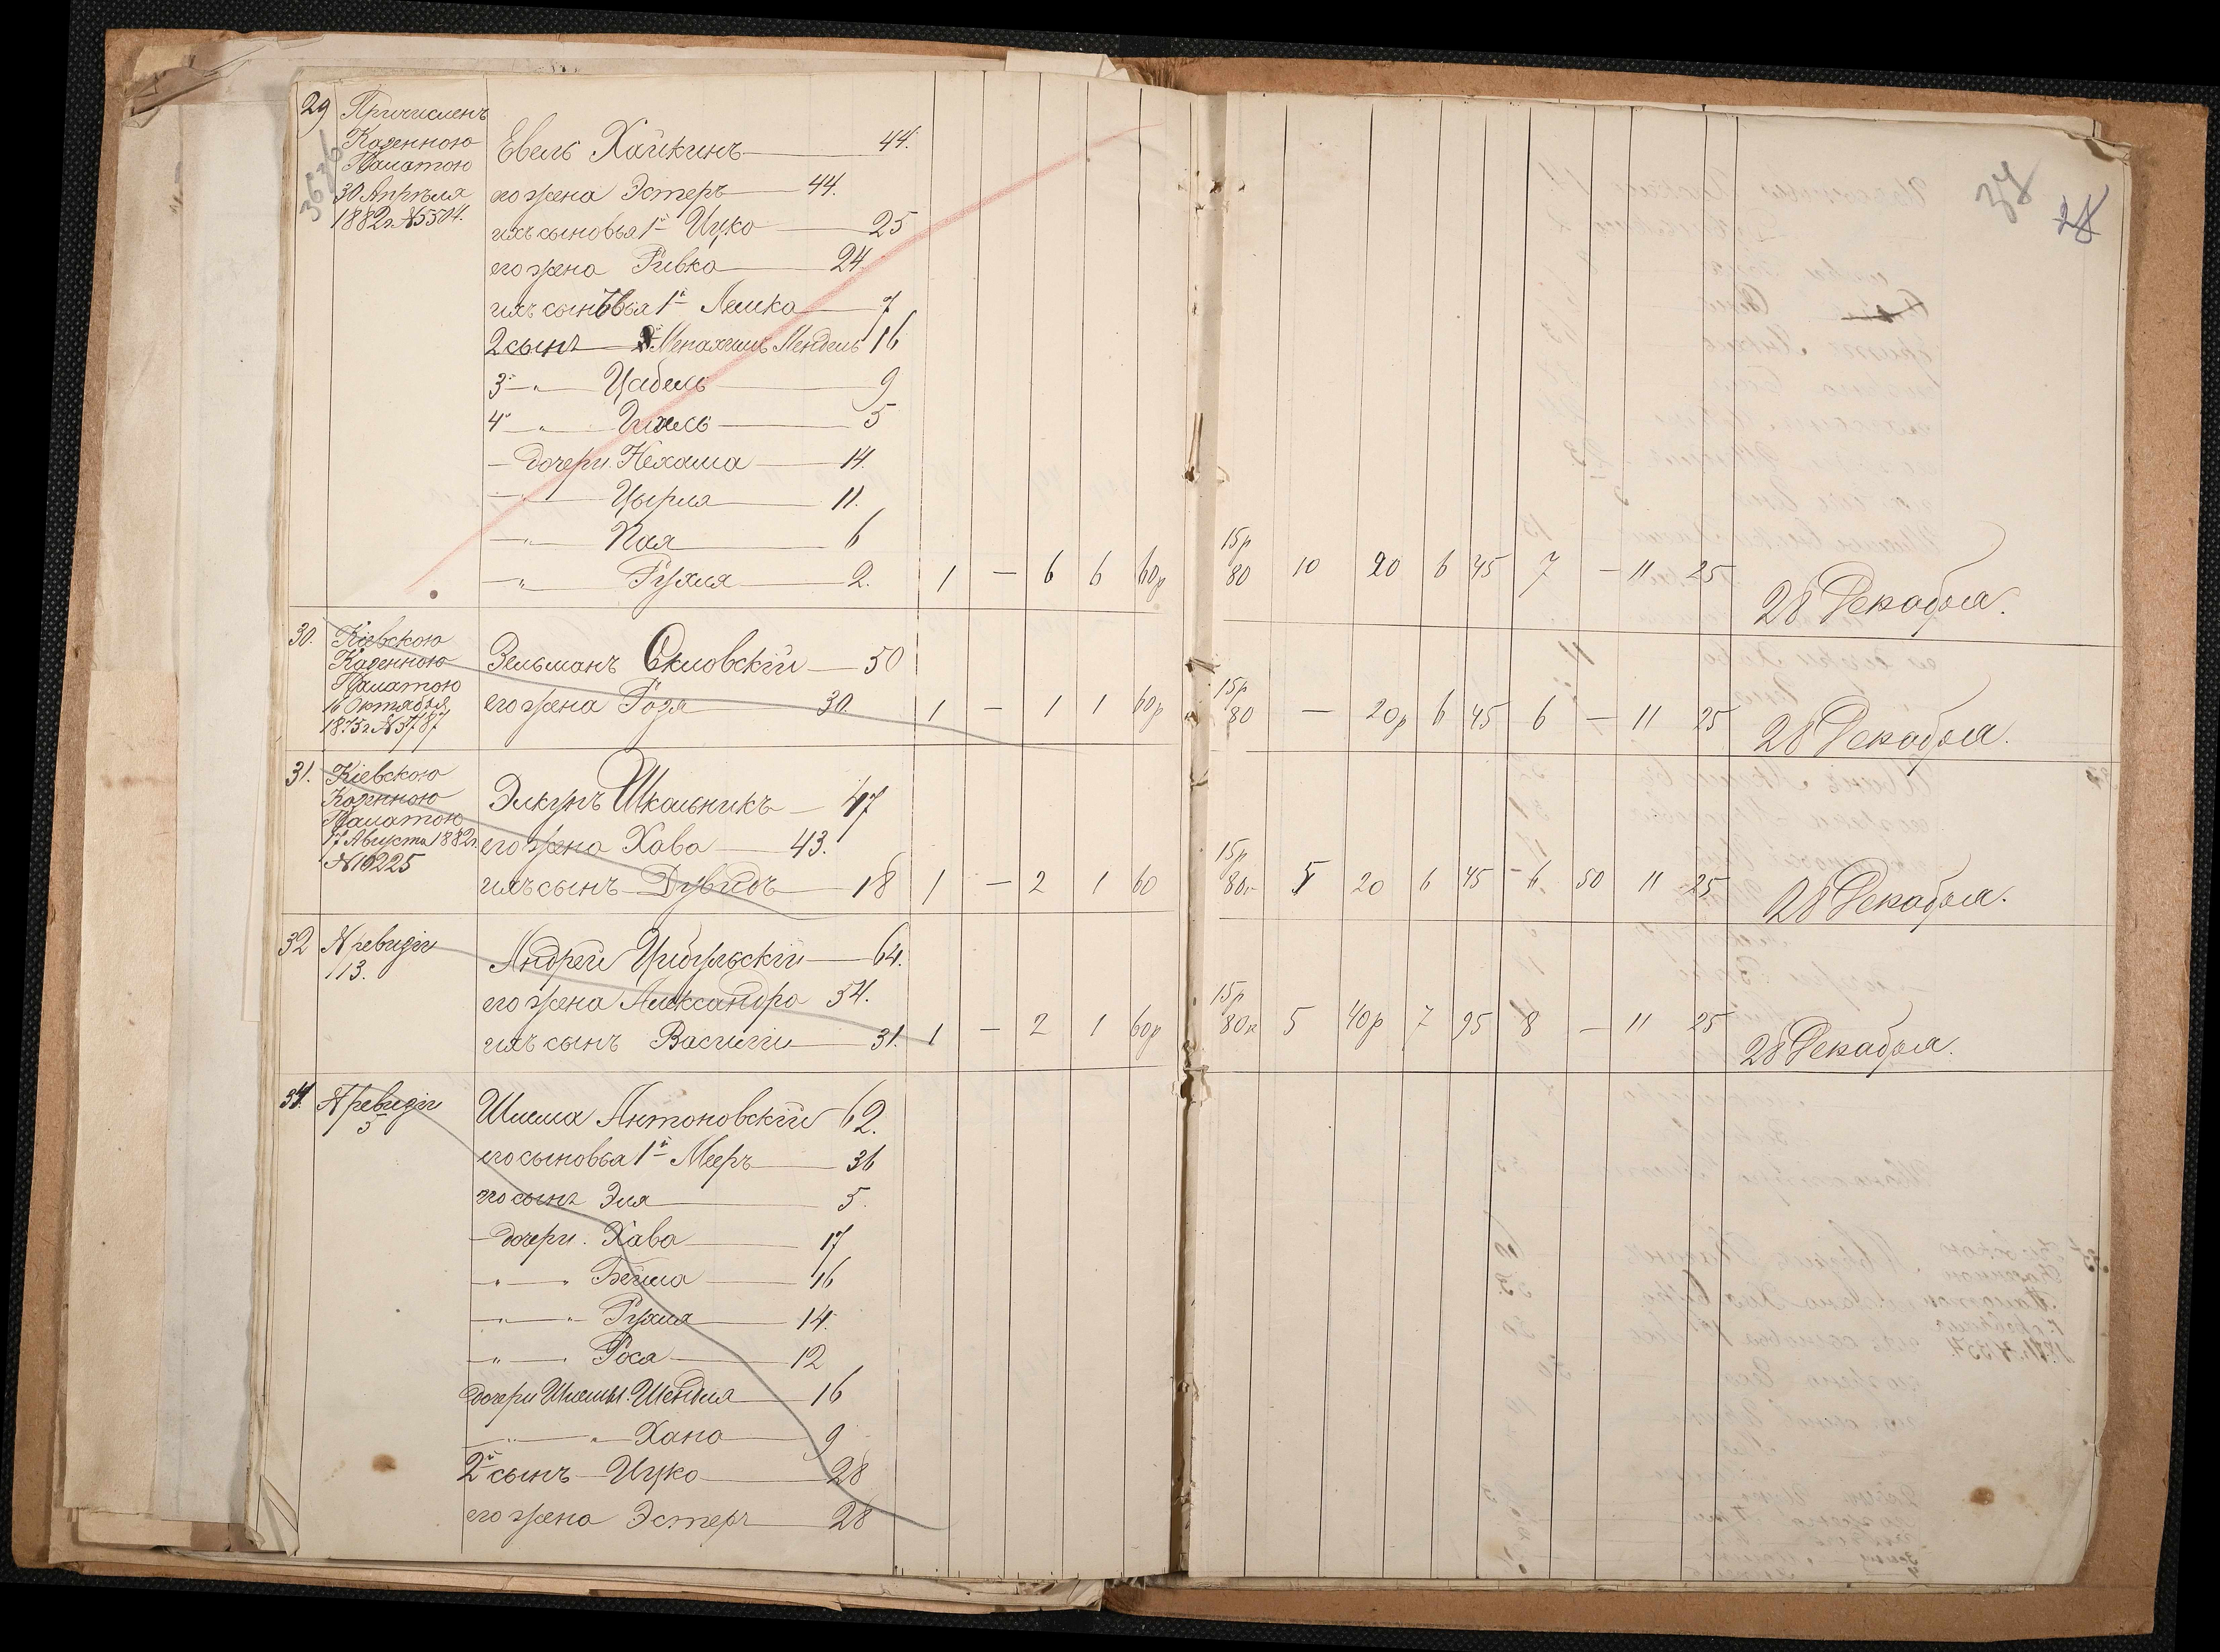 37
28
29 Причисленъ
Казенною
Палатою
30 Апрѣля
1882 г. № 5504.
Евель Хайкинъ 44.
его жена Эстеръ 44.
ихъ сыновья 1й Ицко 25
его жена Ривка 24.
ихъ сыновья 1й Лейка 7
2 сынъ Менахимъ Мендель 16
3й " Цабель 9
4й " 5
дочери Нехама 14.
" Цырля 11.
" Хая 6
" Рухля 2. 1 — 6 6 60р 15р 80 10 20 6 45 7 — 11 25 28 Декабря.
30. Кіевскою
Казенною
Палатою
16 Октября
1875 г. № 3787
Зельманъ Скловскій 50
его жена Розя 30 1 — 1 1 60р 15р 80 — 20р 6 45 6 — 11 25 28 Декабря.
31. Кіевскою
Казенною
Палатою
17 Августа 1882 г.
№ 10225
Элкунъ Школьникъ 47
его жена Хава 43.
ихъ сынъ Дувидъ 18 1 — 2 1 60 15р 80к 5 20 6 45 6 50 11 25 28 Декабря.
32 № ревизіи
113.
Андрей Цибульскій 64.
его жена Александра 54.
ихъ сынъ Василій 31. 1 — 2 1 60р 15р 80к 5 40р 7 95 8 — 11 25 28 Декабря.
34. № ревизіи
5
Шлема Антоновскій 62.
его сыновья 1й Мееръ 36
его сынъ Эля 5.
дочери. Хава 17
" " Бейла 16
" " Рухля 14.
" Рося 12
дочери Шлемы. Шендля 16
" " Хана 9
2й сынъ Ицко 28
его жена Эстеръ 28